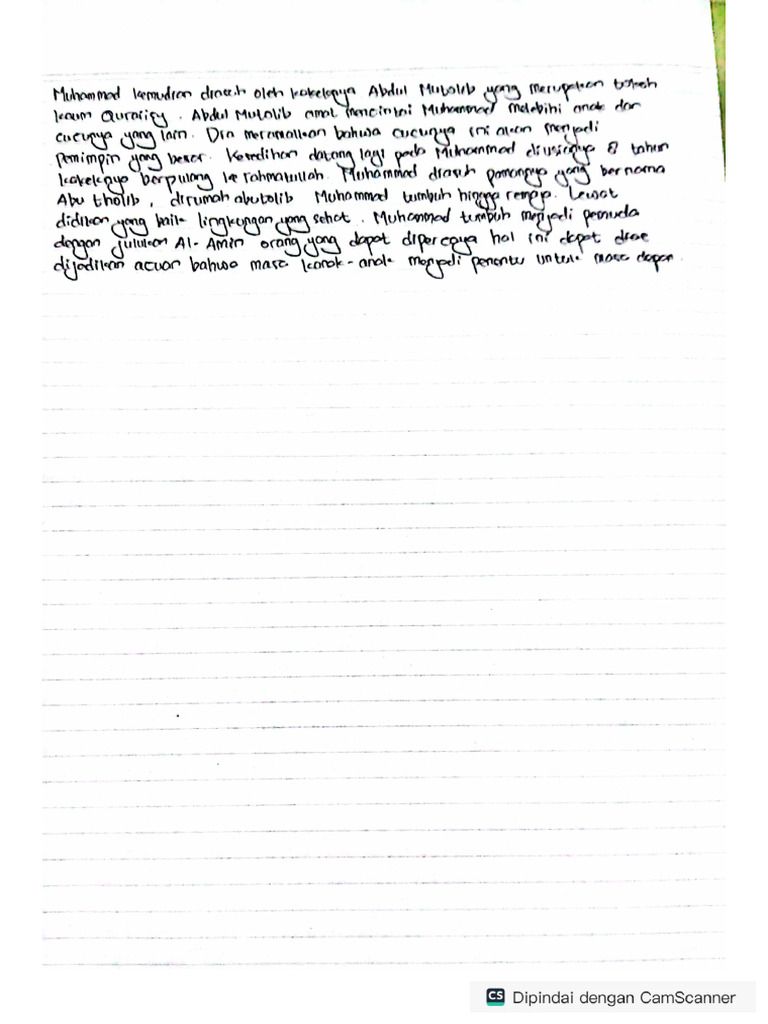 Muhammad kemudian diasuh oleh kakeknya Abdul Mutolib yang merupakan tokoh
kaum Quraisy. Abdul Mutolib amat mencintai Muhammad melebihi anak dan
cucunya yang lain. Dia meramalkan bahwa cucunya ini akan menjadi
pemimpin yang besar. Kesedihan datang lagi pada Muhammad diusianya 8 tahun
kakeknya berpulang ke rahmatullah. Muhammad diasuh pamannya yang bernama
Abu tholib, dirumah abutolib Muhammad tumbuh hingga remaja. Lewat
didikan yang baik lingkungan yang sehat. Muhammad tumbuh menjadi pemuda
dengan julukan Al-Amin orang yang dapat dipercaya hal ini dapat
dijadikan acuan bahwa masa kanak-anak menjadi penentu untuk masa depan.
CS Dipindai dengan CamScanner